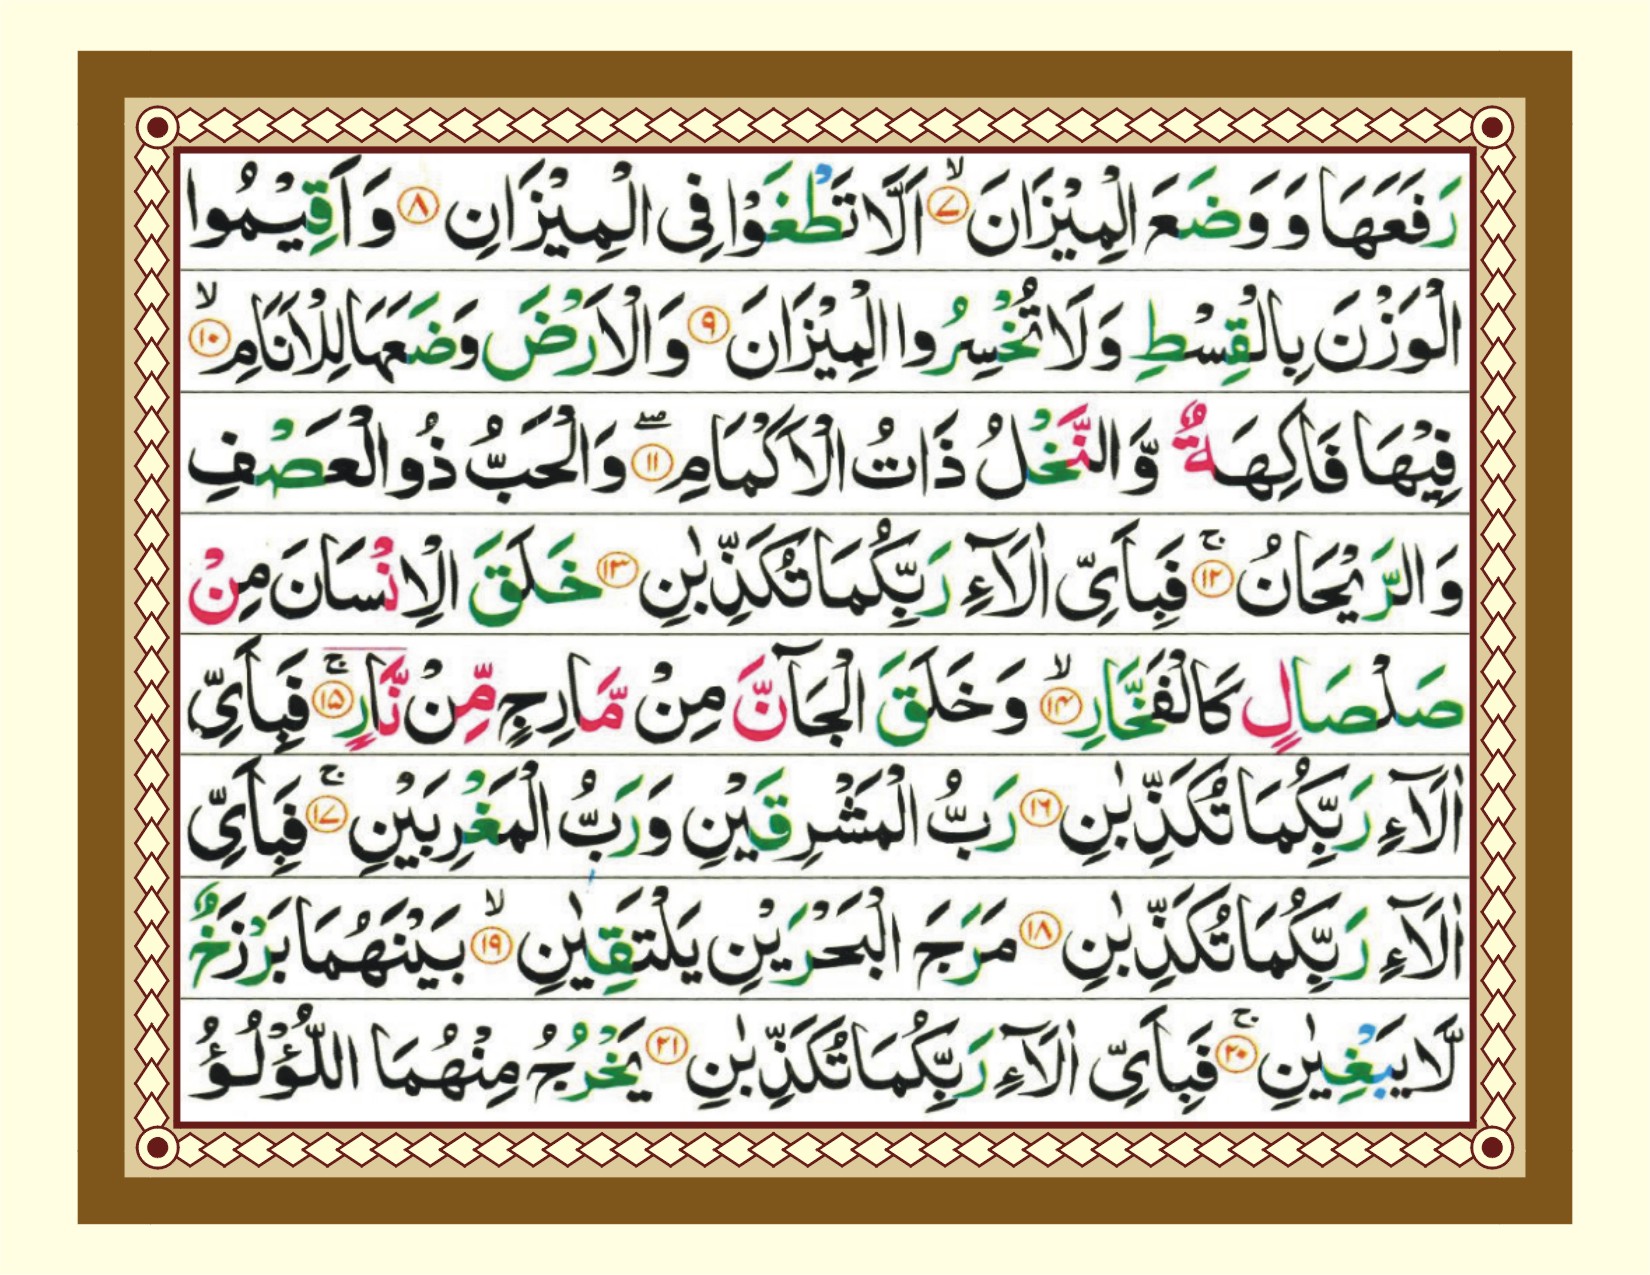 رَفَعَهَا وَ وَضَعَ الْمِيْزَانَ ۙ﴿۷﴾ اَلَّا تَطْغَوْا فِى الْمِيْزَانِ ﴿۸﴾ وَ اَقِيْمُوا
الْوَزْنَ بِالْقِسْطِ وَ لَا تُخْسِرُوا الْمِيْزَانَ ﴿۹﴾ وَ الْاَرْضَ وَضَعَهَا لِلْاَنَامِ ۙ﴿۱۰﴾
فِيْهَا فَاكِهَةٌ وَّ النَّخْلُ ذَاتُ الْاَكْمَامِ ۖ﴿۱۱﴾ وَ الْحَبُّ ذُو الْعَصْفِ
وَ الرَّيْحَانُ ۚ﴿۱۲﴾ فَبِاَىِّ اٰلَآءِ رَبِّكُمَا تُكَذِّبٰنِ ﴿۱۳﴾ خَلَقَ الْاِنْسَانَ مِنْ
صَلْصَالٍ كَالْفَخَّارِ ۙ﴿۱۴﴾ وَ خَلَقَ الْجَآنَّ مِنْ مَّارِجٍ مِّنْ نَّارٍ ۚ﴿۱۵﴾ فَبِاَىِّ
اٰلَآءِ رَبِّكُمَا تُكَذِّبٰنِ ﴿۱۶﴾ رَبُّ الْمَشْرِقَيْنِ وَ رَبُّ الْمَغْرِبَيْنِ ۚ﴿۱۷﴾ فَبِاَىِّ
اٰلَآءِ رَبِّكُمَا تُكَذِّبٰنِ ﴿۱۸﴾ مَرَجَ الْبَحْرَيْنِ يَلْتَقِيٰنِ ۙ﴿۱۹﴾ بَيْنَهُمَا بَرْزَخٌ
لَّا يَبْغِيٰنِ ۚ﴿۲۰﴾ فَبِاَىِّ اٰلَآءِ رَبِّكُمَا تُكَذِّبٰنِ ﴿۲۱﴾ يَخْرُجُ مِنْهُمَا اللُّؤْلُؤُ